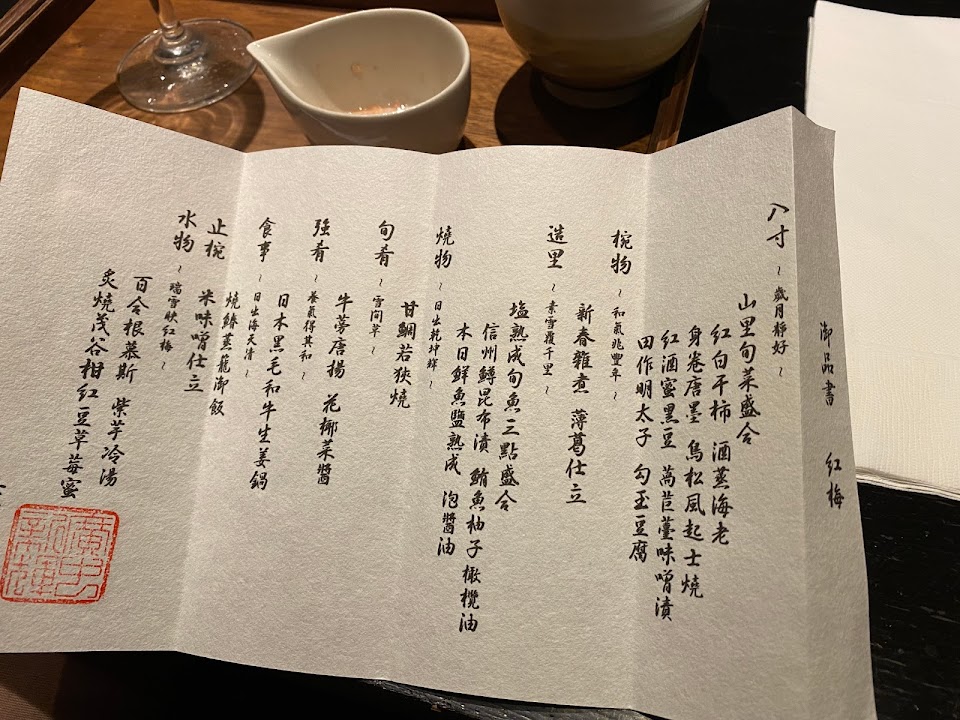 御品書 紅梅
八寸 ~ 歲月靜好 ~
山里旬菜盛合
紅白干柿 酒蒸海老
身卷唐墨 鳥松風起士燒
紅酒蜜黑豆 萵苣薹味噌漬
田作明太子 勾玉豆腐
椀物 ~ 和氣兆豐年 ~
新春雜煮 薄葛仕立
造里 ~ 素雪覆千里 ~
塩熟成旬魚三點盛合
信州鱒昆布漬 鮪魚柚子橄欖油
本日鮮魚鹽熟成 泡醬油
燒物 ~ 日出乾坤輝 ~
甘鯛若狹燒
旬肴 ~ 雪間草 ~
牛蒡唐揚 花椰菜醬
強肴 ~ 養氣得其和 ~
日本黑毛和牛生姜鍋
食事 ~ 日出海天清 ~
燒鰆蒸籠御飯
止椀 米味噌仕立
水物 ~ 瑞雪映紅梅 ~
百合根慕斯 紫芋冷湯
炙燒茂谷柑 紅豆草莓蜜